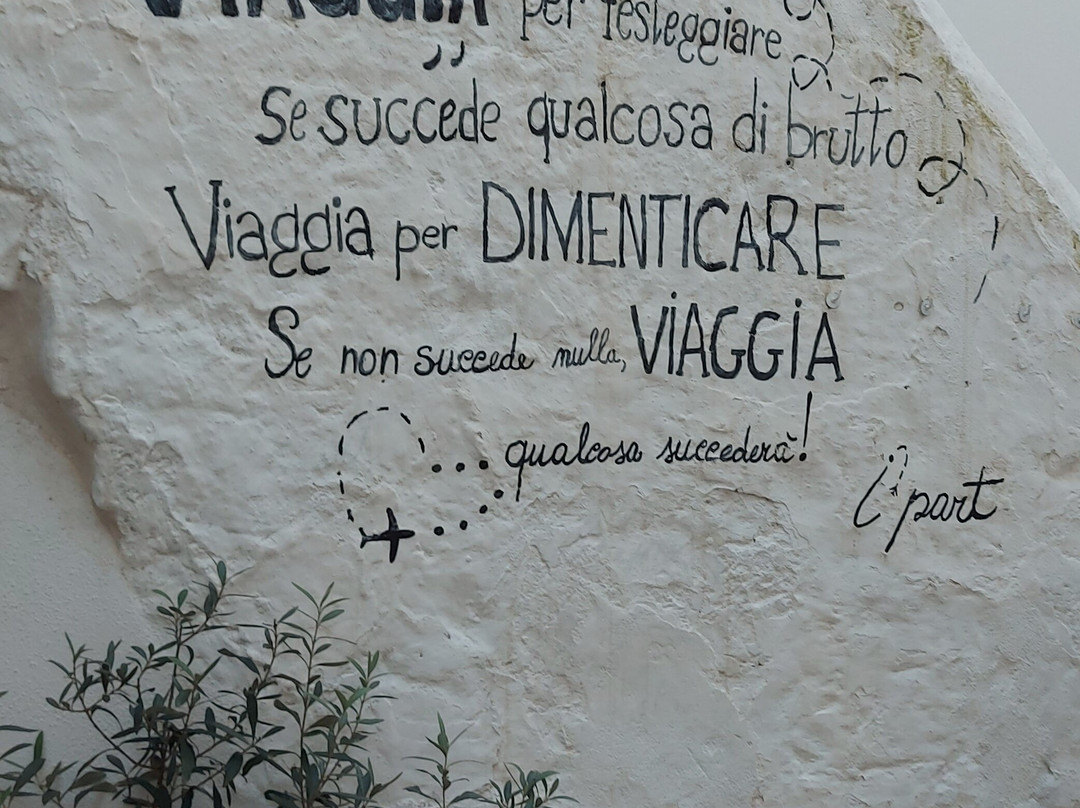 VIAGGIA per festeggiare
Se succede qualcosa di brutto
Viaggia per DIMENTICARE
Se non succede nulla, VIAGGIA
qualcosa succederà!
i part